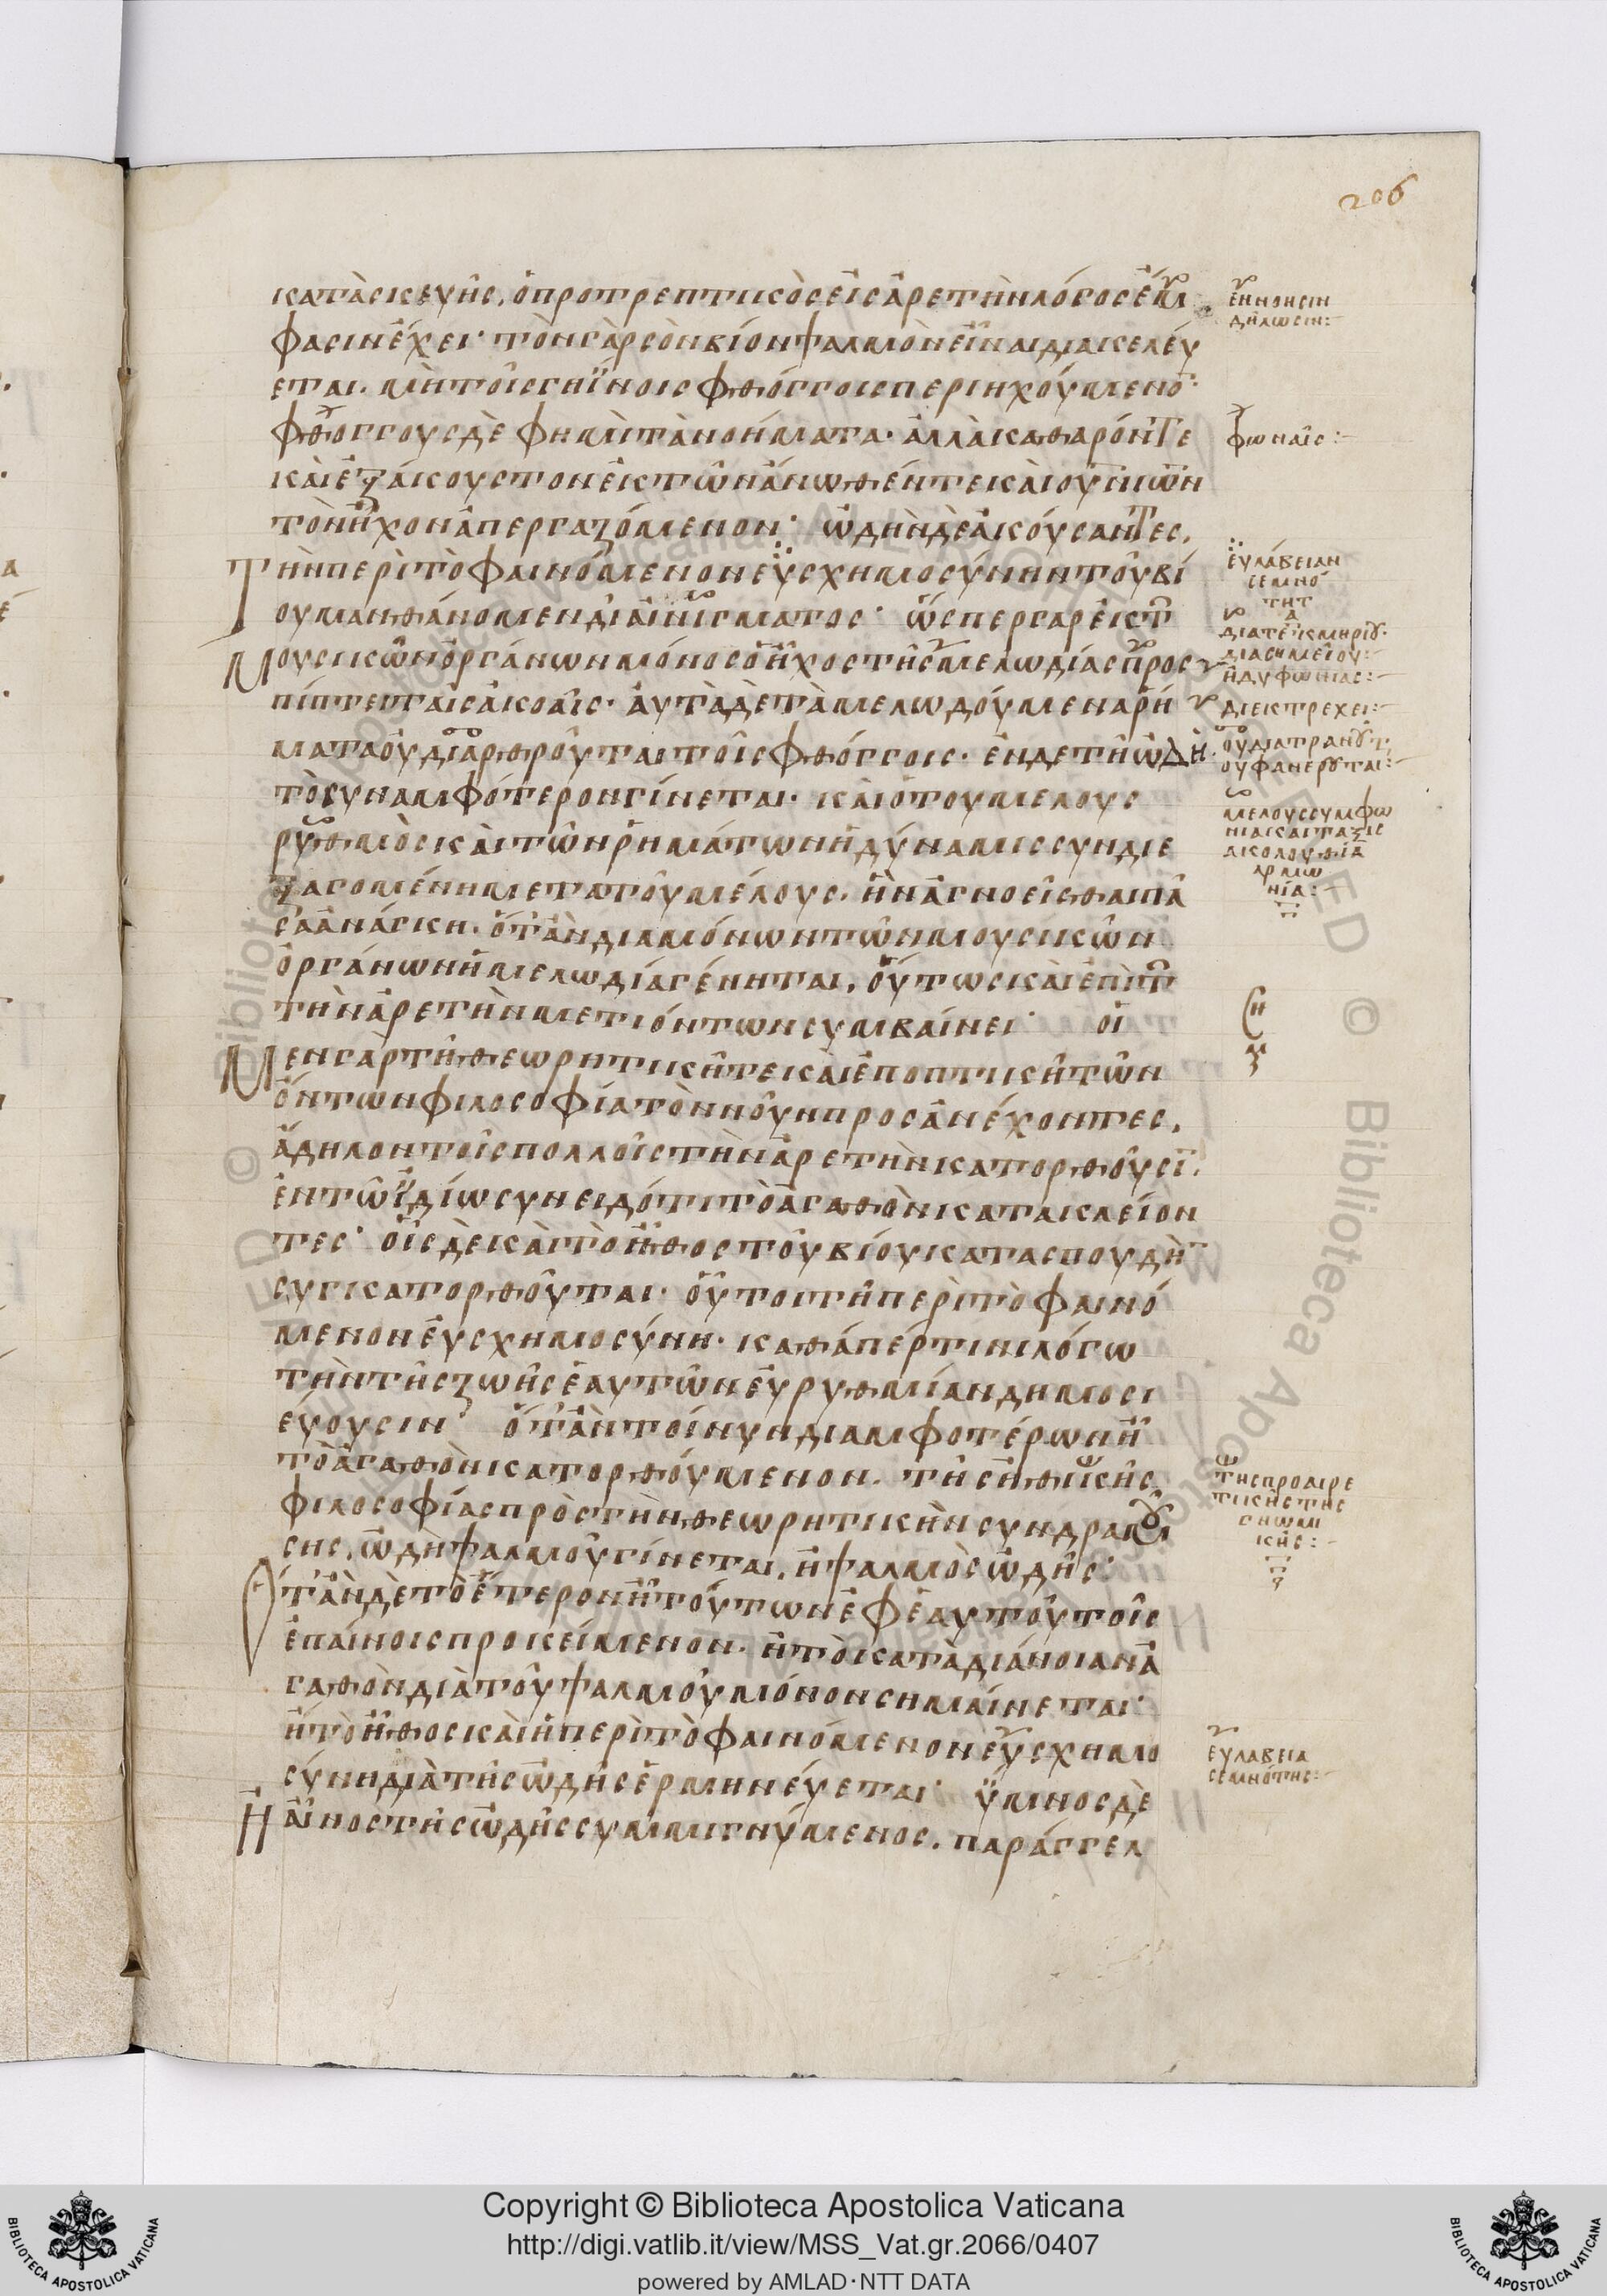 206
κατασκευῆς, ὁ προτρεπτικὸς εἰς ἀρετὴν λόγος ἔμ
φασιν ἔχει· τὸν γὰρ σὸν βίον ψαλμὸν εἶναι διακελεύ
εται. μὴ τοῖς γηΐνοις φθόγγοις περιηχούμενο̅·
φθόγγους δὲ φημὶ τὰ νοήματα· ἀλλὰ καθαρόν τε
καὶ ἐξάκουστον ἐκ τῶν ἄνωθέν τε καὶ οὐνιῶν
τὸν ἦχον ἀπεργαζόμενον· ὠδὴν δὲ ἀκούσαντες.
Τὴν περὶ τὸ φαινόμενον εὐσχημοσύνην τοῦ βί
ου μανθάνομεν δι αἰνίγματος· ὥσπερ γαρ ἐκ τ
Μουσικῶν ὀργάνων μόνος ὁ ἦχος τῆς μελωδίας προς
πίπτει ταῖς ἀκοαῖς· ἀυτὰ δε τὰ μελωδούμενα ῥή
ματα οὐ διαρθροῦται τοῖς φθόγγοις· ἐν δε τῆ ὠδῆ.
τὸ συναμφότερον γίνεται· καὶ ὁ του μελους
ρυθμὸς καὶ τῶν ῥημάτων ἡ δύναμις συνδιε
ξαγομένη μετα τοῦ μέλους. ἣν ἀγνοεῖσθαι πᾶ
σα ἀνάγκη. ὅτ' ἂν δια μόνων τῶν μουσικῶν
ὀργάνων ἡ μελωδία γένηται, οὕτως καὶ ἐπὶ τ
τὴν ἀρετὴν μετιόντων συμβαίνει· οἱ
Μεν γὰρ τῆ θεωρητικῆ τε καὶ ἐποπτικῆ τῶν
ὄντων φιλοσοφία τὸν νοῦν προσανέχοντες,
ἄδηλον τοῖς πολλοῖς τὴν ἀρετὴν κατορθοῦσι̅.
ἐν τῶ ἰδίω συνειδότι τὸ ἀγαθὸν κατακλείον
τες· οἷς δὲ καὶ τὸ ἦθος τοῦ βίου κατασπουδὴ
συγκατορθοῦται· οὗτοι τῆ περὶ τὸ φαινό
μενον ἐυσχημοσύνη· καθάπέρ τινι λόγω
τὴν τῆς ζωῆς ἑαυτῶν ἐυρυθμίαν δημοσι
εύουσιν· ὅτ' ἂν τοίνυν δι αμφοτέρων ἦ
τὸ ἀγαθὸν κατορθούμενον. τῆς ἠθικῆς
φιλοσοφίας πρὸς τὴν θεωρητικὴν συνδραμού
σης, ὠδὴ ψαλμοῦ γίνεται, ἢ ψαλμὸς ὠδῆς·
Ὅτ' ἂν δὲ τὸ ἕτερον ἦ τούτων ἐφ ἑαυτοῦ τοῖς
ἐπαίνοις προκείμενον. ἢ τὸ κατὰ διάνοιαν ἀ
γαθὸν διὰ τοῦ ψαλμοῦ μόνον σημαίνεται·
ἢ τὸ ἦθος καὶ ἡ περὶ τὸ φαινόμενον ἐυσχημο
σύνη διὰ τῆς ὠδῆς ἑρμηνεύεται· ὕμνος δὲ
Ἢ αἶνος τῆς ὠδῆς συμμιγνύμενος. παράγγελ
ἔννοησιν
δήλωσιν:
φωναῖς:
εὐλάβειαν
σεμνό
τητ
α
διατεκμηρίου·
διασημείου:
ἡδυφωνίας:
διεκτρέχει:
οὐ διατρανοῦτ,
ου φανερουται:
μελους συμφω
νια και ταξις
ακολουθία
αρμω
νία:
ση
τῆς προαιρε
τικῆς τῆς
γνωμι
κῆς:
εὐλάβεια
σεμνότης:
Copyright © Biblioteca Apostolica Vaticana
http://digi.vatlib.it/view/MSS_Vat.gr.2066/0407
powered by AMLAD·NTT DATA
BIBLIOTECA APOSTOLICA VATICANA
BIBLIOTECA APOSTOLICA VATICANA